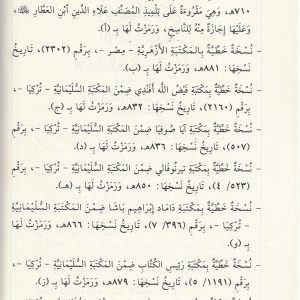 ٧١٠هـ، وَهِيَ مَقْرُوءَةٌ عَلَى تِلْمِيذِ المُصَنِّفِ عَلَاءِ الدِّينِ ابْنِ العَطَّارِ
وَعَلَيْهَا إِجَازَةٌ مِنْهُ لِلنَّاسِخِ، وَرَمَزْتُ لَهَا بِـ (أ).
- نُسْخَةٌ خَطِّيَّةٌ بِالمَكْتَبَةِ الأَزْهَرِيَّةِ - مِصْرَ -، بِرَقْمِ (٢٣٠٢)، تَارِيخُ
نَسْخِهَا: ٨٨١هـ، وَرَمَزْتُ لَهَا بِـ (ب).
- نُسْخَةٌ خَطِّيَّةٌ بِمَكْتَبَةِ فَيْضِ اللهِ أَفَنْدِي ضِمْنَ المَكْتَبَةِ السُّلَيْمَانِيَّةِ - تُرْكِيَا -، بِرَقْمِ
(٢١٦٠)، تَارِيخُ نَسْخِهَا: ٨٣٢هـ، وَرَمَزْتُ لَهَا بِـ (ج).
- نُسْخَةٌ خَطِّيَّةٌ بِمَكْتَبَةِ آيَا صُوفِيَا ضِمْنَ المَكْتَبَةِ السُّلَيْمَانِيَّةِ - تُرْكِيَا -، بِرَقْمِ
(٥٠٧)، تَارِيخُ نَسْخِهَا: ٨٣٦هـ، وَرَمَزْتُ لَهَا بِـ (د).
- نُسْخَةٌ خَطِّيَّةٌ بِمَكْتَبَةِ تِيرْنُوفَالِي ضِمْنَ المَكْتَبَةِ السُّلَيْمَانِيَّةِ - تُرْكِيَا -، بِرَقْمِ
(٥٢٣/ ٤)، تَارِيخُ نَسْخِهَا: ٨٥٠هـ، وَرَمَزْتُ لَهَا بِـ (هـ).
- نُسْخَةٌ خَطِّيَّةٌ بِمَكْتَبَةِ دَامَاد إِبْرَاهِيم بَاشَا ضِمْنَ المَكْتَبَةِ السُّلَيْمَانِيَّةِ
- تُرْكِيَا -، بِرَقْمِ (٣٩٦/ ٧)، تَارِيخُ نَسْخِهَا: ٨٦٦هـ، وَرَمَزْتُ لَهَا
بِـ (و).
- نُسْخَةٌ خَطِّيَّةٌ بِمَكْتَبَةِ رَئِيسِ الكُتَّابِ ضِمْنَ المَكْتَبَةِ السُّلَيْمَانِيَّةِ - تُرْكِيَا -،
بِرَقْمِ (١١٩١/ ٥)، تَارِيخُ نَسْخِهَا: ٨٧٩هـ، وَرَمَزْتُ لَهَا بِـ (ز).